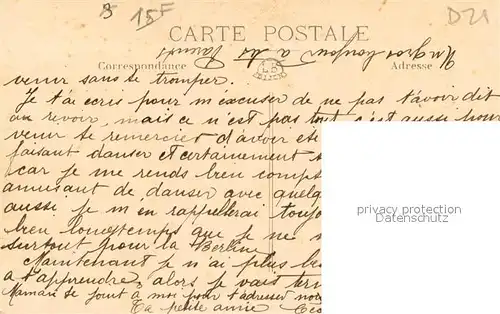 B 15F
D21
CARTE POSTALE
Correspondance
Adresse
Un gros bonjour à tes Parents
venir sans se tromper.
Je t'ai écris pour m'excuser de ne pas t'avoir dit
au revoir, mais ce n'est pas tout c'est aussi pour
venir te remercier d'avoir été
faisant danser et certainement
car je me rends bien
amusant de danser avec
aussi je m'en rappellerai
bien longtemps que je ne
surtout pour la Berline
Maintenant je n'ai plus
a t'apprendre, alors je vais
Maman se joint a moi pour t'adresser
Ta petite amie
privacy protection
Datenschutz